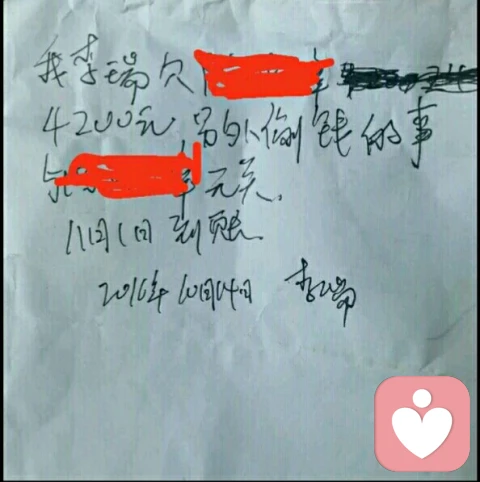 我李瑞欠
4200元 另外偷钱的事
与 无关.
11月1日到账.
2016年10月14日 李瑞